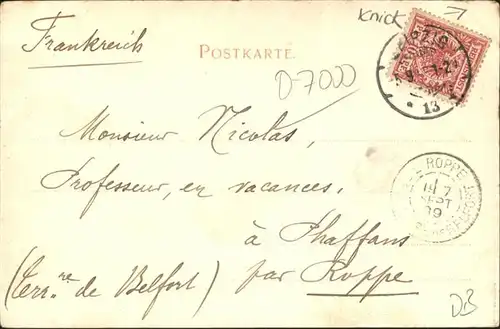 Knick
Frankreich
POSTKARTE.
D-7000
13
Monsieur Nicolas,
Professeur, en vacances,
à Phaffans
(Terr.re de Belfort) par Roppe
ROPPE
7
SEPT
DB